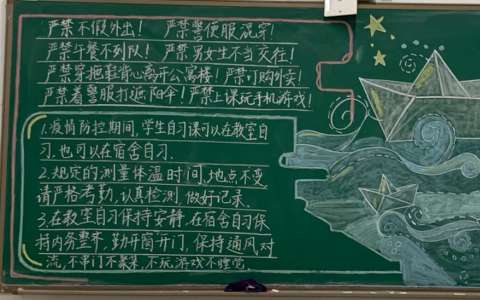 严禁不假外出！ 严禁警便服混穿！
严禁午餐不列队！ 严禁男女生不当交往！
严禁穿拖鞋背心离开公寓楼！严禁订购外卖！
严禁着警服打遮阳伞！严禁上课玩手机游戏！
1.疫情防控期间,学生自习课可以在教室自
习.也可以在宿舍自习.
2.规定的测量体温时间,地点不变
请严格考勤,认真检测 做好记录.
3.在教室自习保持安静,在宿舍自习保
持内务整齐,勤开窗开门,保持通风对
流,不串门不聚集,不玩游戏不睡觉